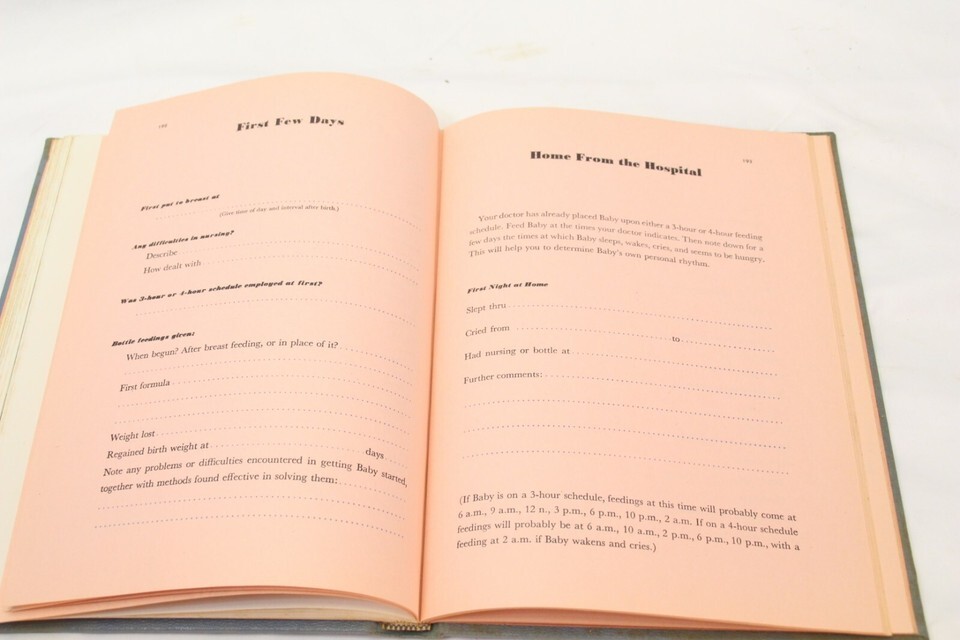 First Few Days
First put to breast at
(Give time of day and interval after birth.)
Any difficulties in nursing?
Describe
How dealt with
Was 3-hour or 4-hour schedule employed at first?
Bottle feedings given:
When begun? After breast feeding, or in place of it?
First formula
Weight lost
Regained birth weight at days
Note any problems or difficulties encountered in getting Baby started,
together with methods found effective in solving them:
Home From the Hospital
193
Your doctor has already placed Baby upon either a 3-hour or 4-hour feeding
schedule. Feed Baby at the times your doctor indicates. Then note down for a
few days the times at which Baby sleeps, wakes, cries, and seems to be hungry.
This will help you to determine Baby's own personal rhythm.
First Night at Home
Slept thru
Cried from to
Had nursing or bottle at
Further comments:
(If Baby is on a 3-hour schedule, feedings at this time will probably come at
6 a.m., 9 a.m., 12 n., 3 p.m., 6 p.m., 10 p.m., 2 a.m. If on a 4-hour schedule
feedings will probably be at 6 a.m., 10 a.m., 2 p.m., 6 p.m., 10 p.m., with a
feeding at 2 a.m. if Baby wakens and cries.)